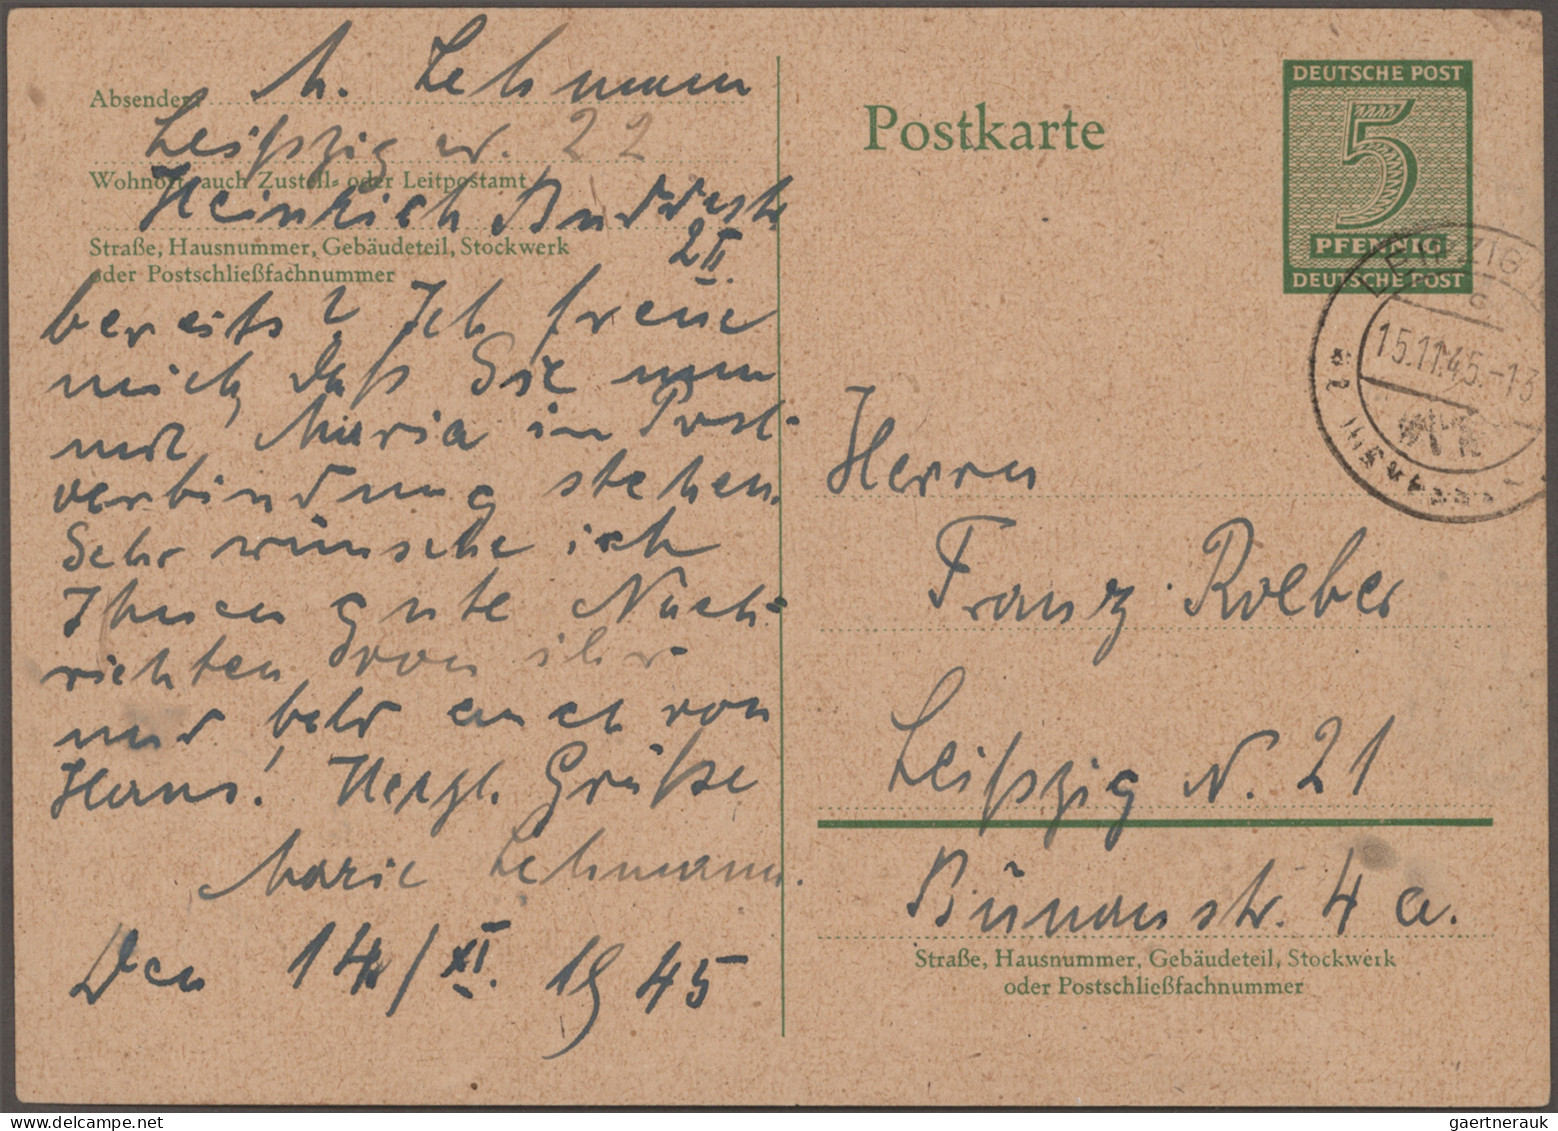 Absender: M. Lehmann
Leipzig W. 22
Wohnort, auch Zustell- oder Leitpostamt
Heinrich Buddestr
2 II.
Straße, Hausnummer, Gebäudeteil, Stockwerk
oder Postschließfachnummer
bereits? Ich freue
mich, daß Sie nun
mit Maria in Post-
verbindung stehen.
Sehr wünsche ich
Ihnen gute Nach-
richten von ihr
und bald auch von
Hans! Herzl. Grüße
Marie Lehmann.
Den 14/XI. 1945
Postkarte
DEUTSCHE POST
5
PFENNIG
DEUTSCHE POST
LEIPZIG
15.11.45.-13
Herrn
Franz Roeber
Leipzig N. 21
Bünaustr. 4 a.
Straße, Hausnummer, Gebäudeteil, Stockwerk
oder Postschließfachnummer
gaertnerauk